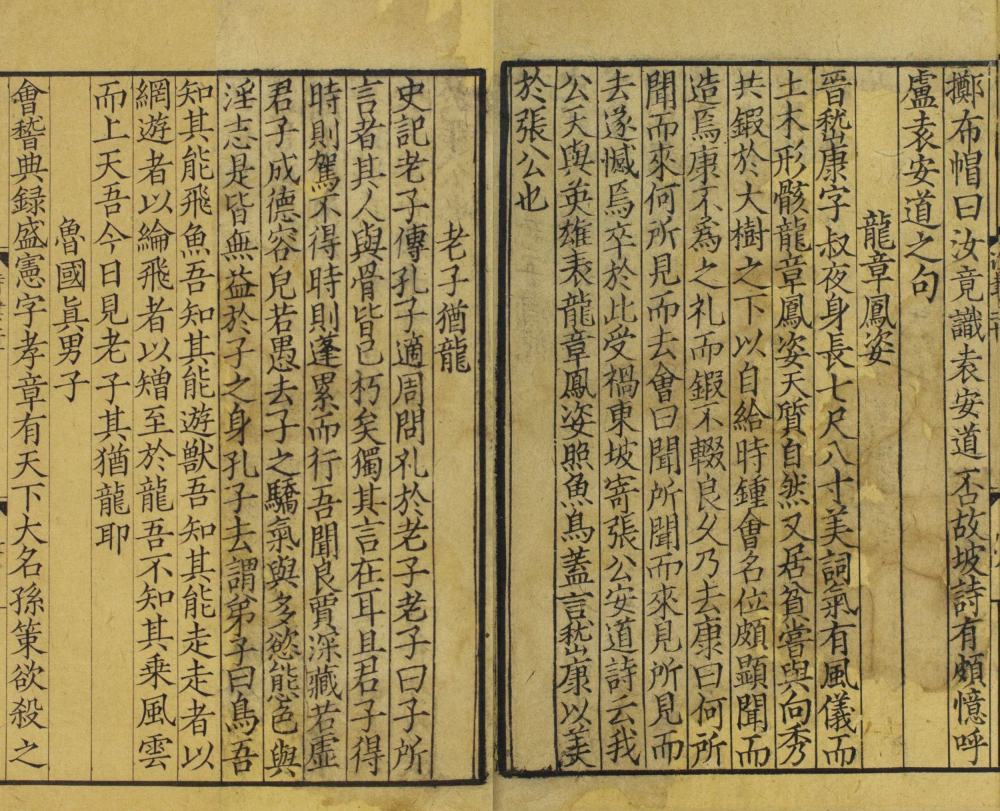 擲布帽曰汝竟識袁安道否故坡詩有頗憶呼
盧袁安道之句
龍章鳳姿
晉嵇康字叔夜身長七尺八寸美詞氣有風儀而
土木形骸龍章鳳姿天質自然又居貧嘗與向秀
共鍜於大樹之下以自給時鍾會名位頗顯聞而
造焉康不爲之礼而鍜不輟良乆乃去康曰何所
聞而來何所見而去會曰聞所聞而來見所見而
去遂憾焉卒於此受禍東坡寄張公安道詩云我
公天與英雄表龍章鳳姿照魚鳥蓋言嵇康以美
於張公也
老子猶龍
史記老子傳孔子適周問礼於老子老子曰子所
言者其人與骨皆已朽矣獨其言在耳且君子得
時則駕不得時則蓬累而行吾聞良賈深藏若虛
君子成德容皃若愚去子之驕氣與多慾態色與
淫志是皆無益於子之身孔子去謂弟子曰鳥吾
知其能飛魚吾知其能遊獸吾知其能走走者以
網遊者以綸飛者以矰至於龍吾不知其乗風雲
而上天吾今日見老子其猶龍耶
魯國眞男子
會稽典録盛憲字孝章有天下大名孫策欲殺之